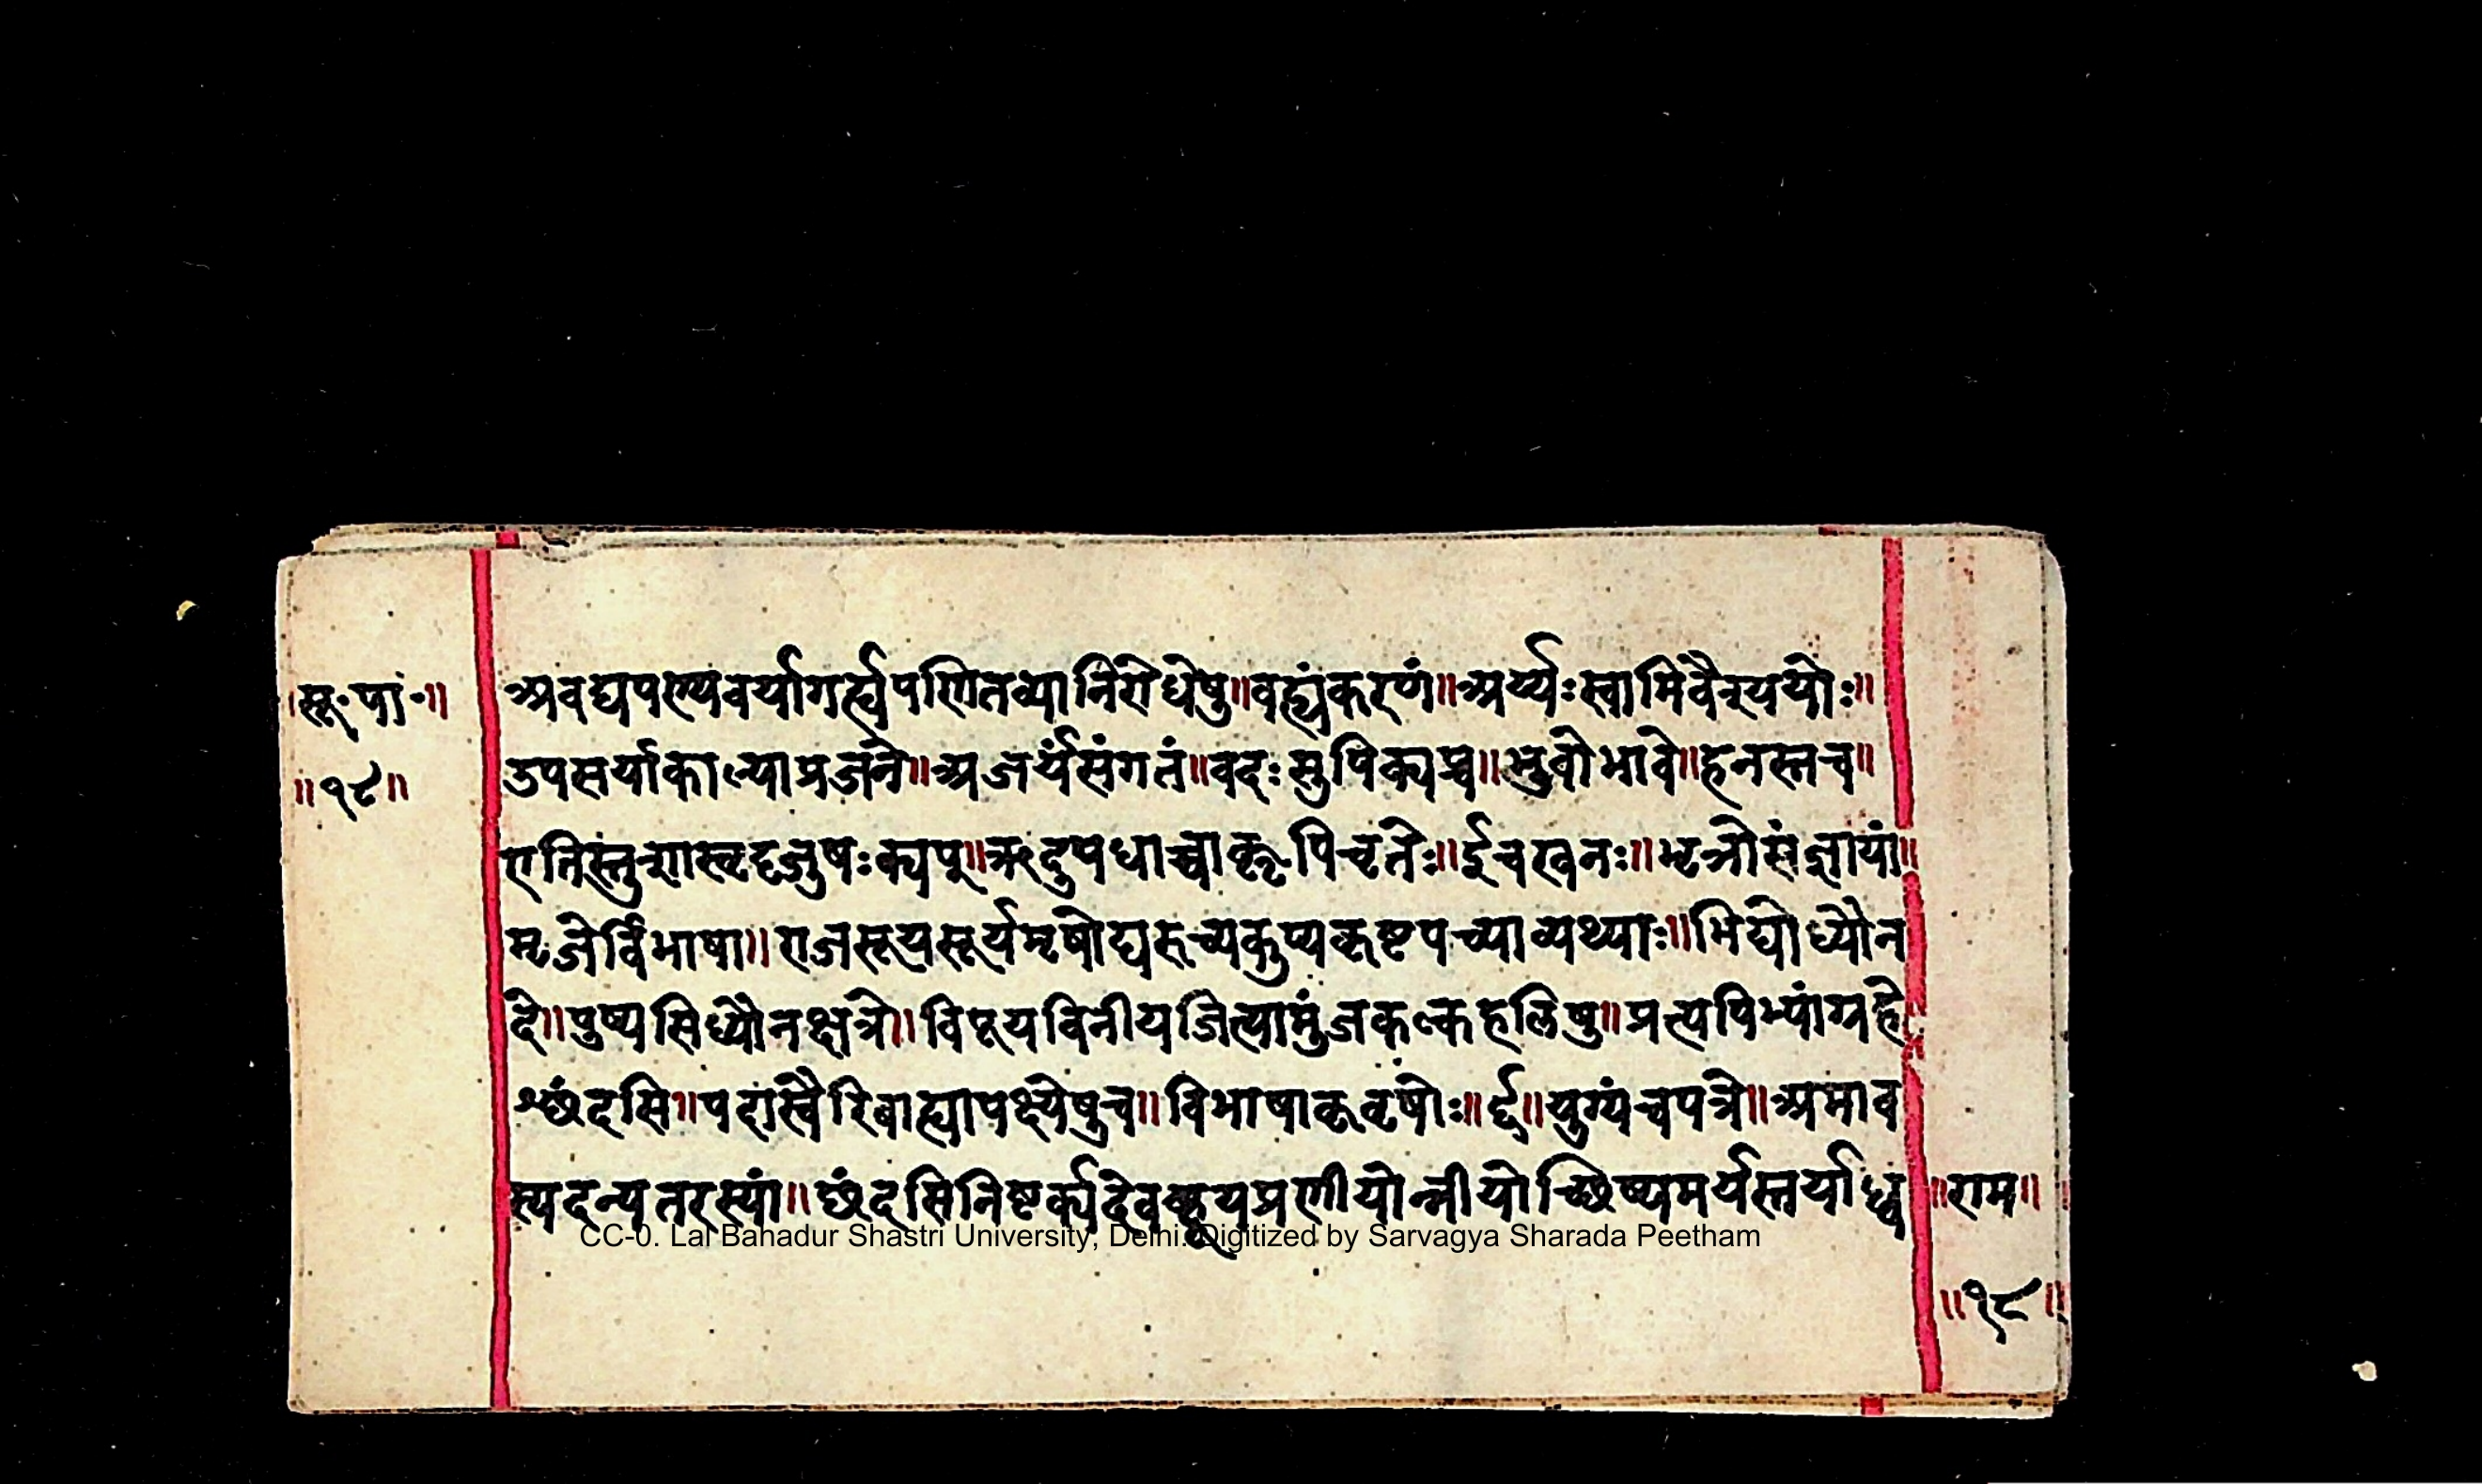 सू॰ पा॰॥
॥१८॥
अवद्यपण्यवर्यागर्ह्यपणितव्यानिरोधेषु॥वह्यंकरणं॥अर्य्यःस्वामिवैश्ययोः॥
उपसर्याकाल्याप्रजने॥अजर्यंसंगतं॥वदःसुपिक्यप्च॥भुवोभावे॥हनस्तच॥
एतिस्तुशास्वृदृजुषःक्यप्॥ऋदुपधाच्चाकॢपिचृतेः॥ईचखनः॥भृञोसंज्ञायां॥
मृजेर्विभाषा॥राजसूयसूर्यमृषोद्यरुच्यकुप्यकृष्टपच्याव्यथ्याः॥भिद्योध्यौन
दे॥पुष्यसिध्यौनक्षत्रे॥विपूयविनीयजित्यामुंजकल्कहलिषु॥प्रत्यपिभ्यांग्रहे
श्छंदसि॥पदास्वैरिबाह्यापक्ष्येषुच॥विभाषाकृवृषोः॥र्द्द॥युग्यंचपत्रे॥अमाव
स्यदन्यतरस्यां॥छंदसिनिष्टर्क्यदेवहूयप्रणीयोन्नीयोच्छिष्यमर्यस्तर्याध्व
॥राम॥
॥१८॥
CC-0. Lal Bahadur Shastri University, Delhi. Digitized by Sarvagya Sharada Peetham